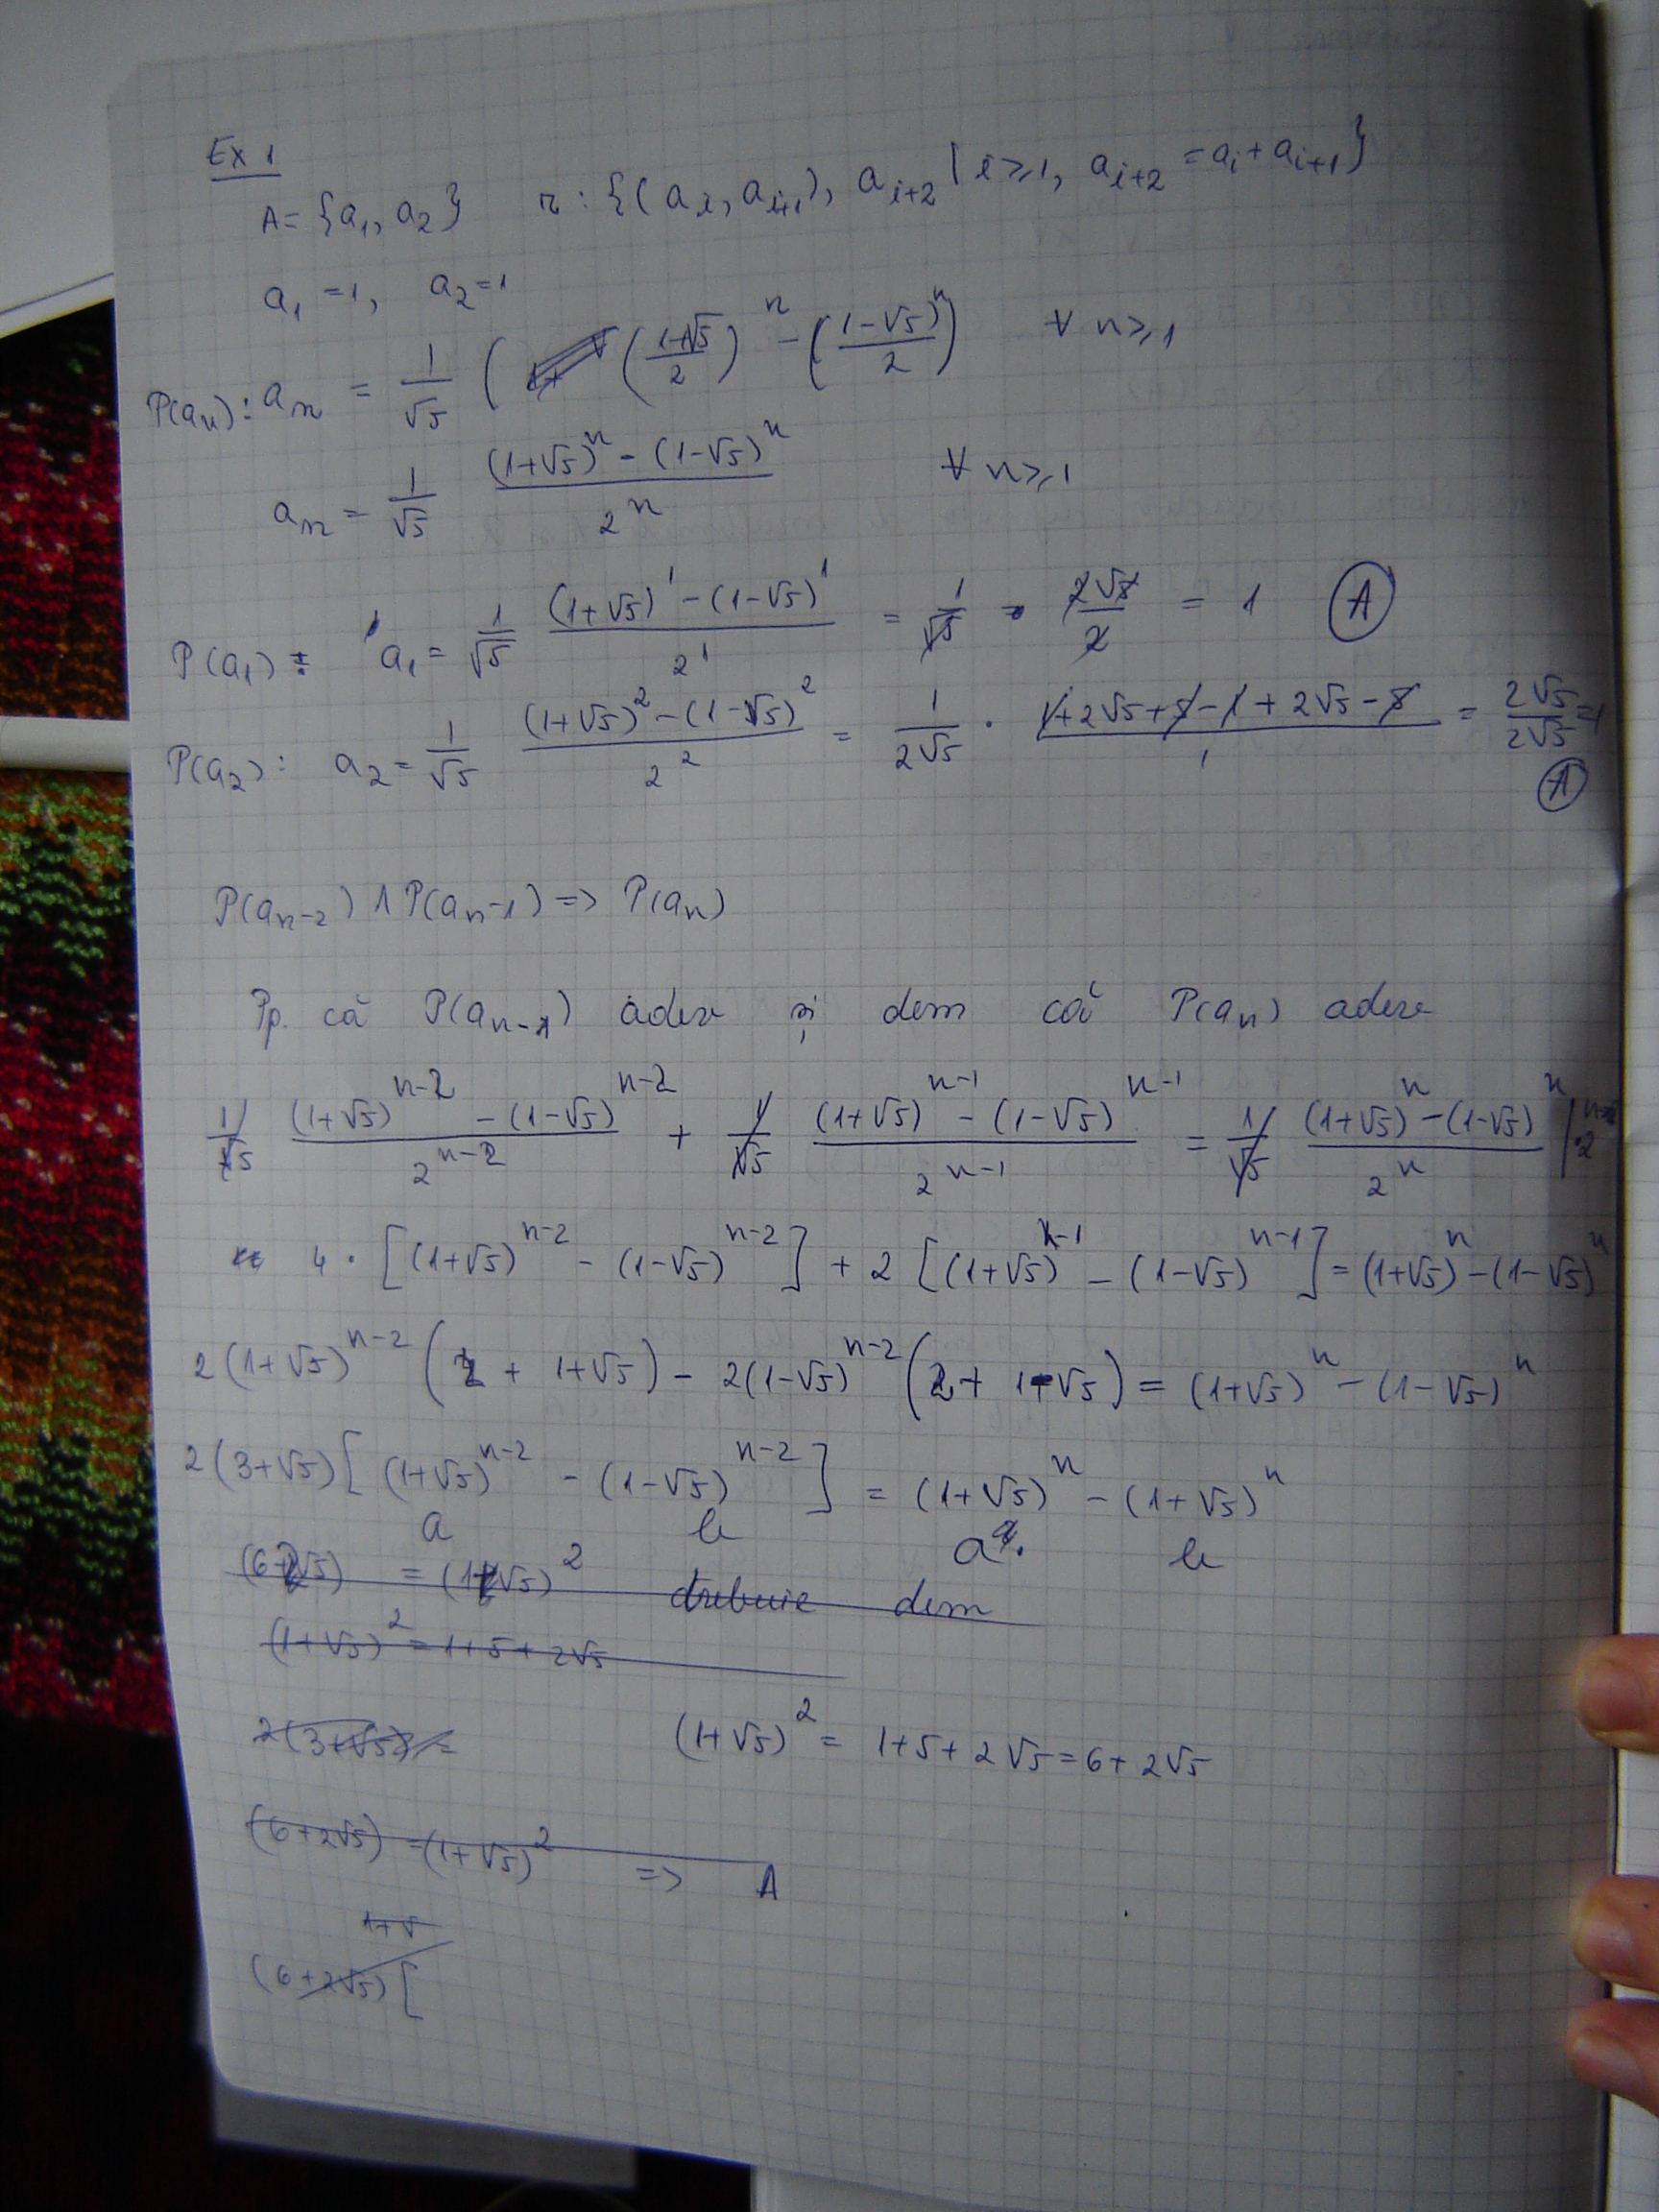 Ex 1
A = {a₁, a₂}   r : {(aᵢ, aᵢ₊₁), aᵢ₊₂ | i ≥ 1, aᵢ₊₂ = aᵢ + aᵢ₊₁}
a₁ = 1, a₂ = 1
P(aₙ): aₙ = 1/√5 ( ((1+√5)/2)ⁿ - ((1-√5)/2)ⁿ )   ∀ n ≥ 1
aₙ = 1/√5 ((1+√5)ⁿ - (1-√5)ⁿ)/2ⁿ   ∀ n ≥ 1
P(a₁) : a₁ = 1/√5 ((1+√5)¹ - (1-√5)¹)/2¹ = 1/√5 · 2√5/2 = 1 (A)
P(a₂) : a₂ = 1/√5 ((1+√5)² - (1-√5)²)/2² = 1/(2√5) · (1+2√5+5-1+2√5-5)/1 = 2√5/2√5 = 1 (A)
P(aₙ₋₂) ∧ P(aₙ₋₁) => P(aₙ)
Pp. că P(aₙ₋₁) adev și dem că P(aₙ) adev
1/√5 ((1+√5)ⁿ⁻² - (1-√5)ⁿ⁻²)/2ⁿ⁻² + 1/√5 ((1+√5)ⁿ⁻¹ - (1-√5)ⁿ⁻¹)/2ⁿ⁻¹ = 1/√5 ((1+√5)ⁿ - (1-√5)ⁿ)/2ⁿ | · 2
4 · [(1+√5)ⁿ⁻² - (1-√5)ⁿ⁻²] + 2 [(1+√5)ⁿ⁻¹ - (1-√5)ⁿ⁻¹] = (1+√5)ⁿ - (1-√5)ⁿ
2(1+√5)ⁿ⁻² (2 + 1+√5) - 2(1-√5)ⁿ⁻² (2 + 1-√5) = (1+√5)ⁿ - (1-√5)ⁿ
2(3+√5) [(1+√5)ⁿ⁻² - (1-√5)ⁿ⁻²] = (1+√5)ⁿ - (1+√5)ⁿ
a   b   a   b
(6+2√5) = (1+√5)² trebuie dem
(1+√5)² = 1+5+2√5
2(3+√5) =   (1+√5)² = 1+5+2√5 = 6+2√5
(6+2√5) = (1+√5)² => A
1+√
(6+2√5) [